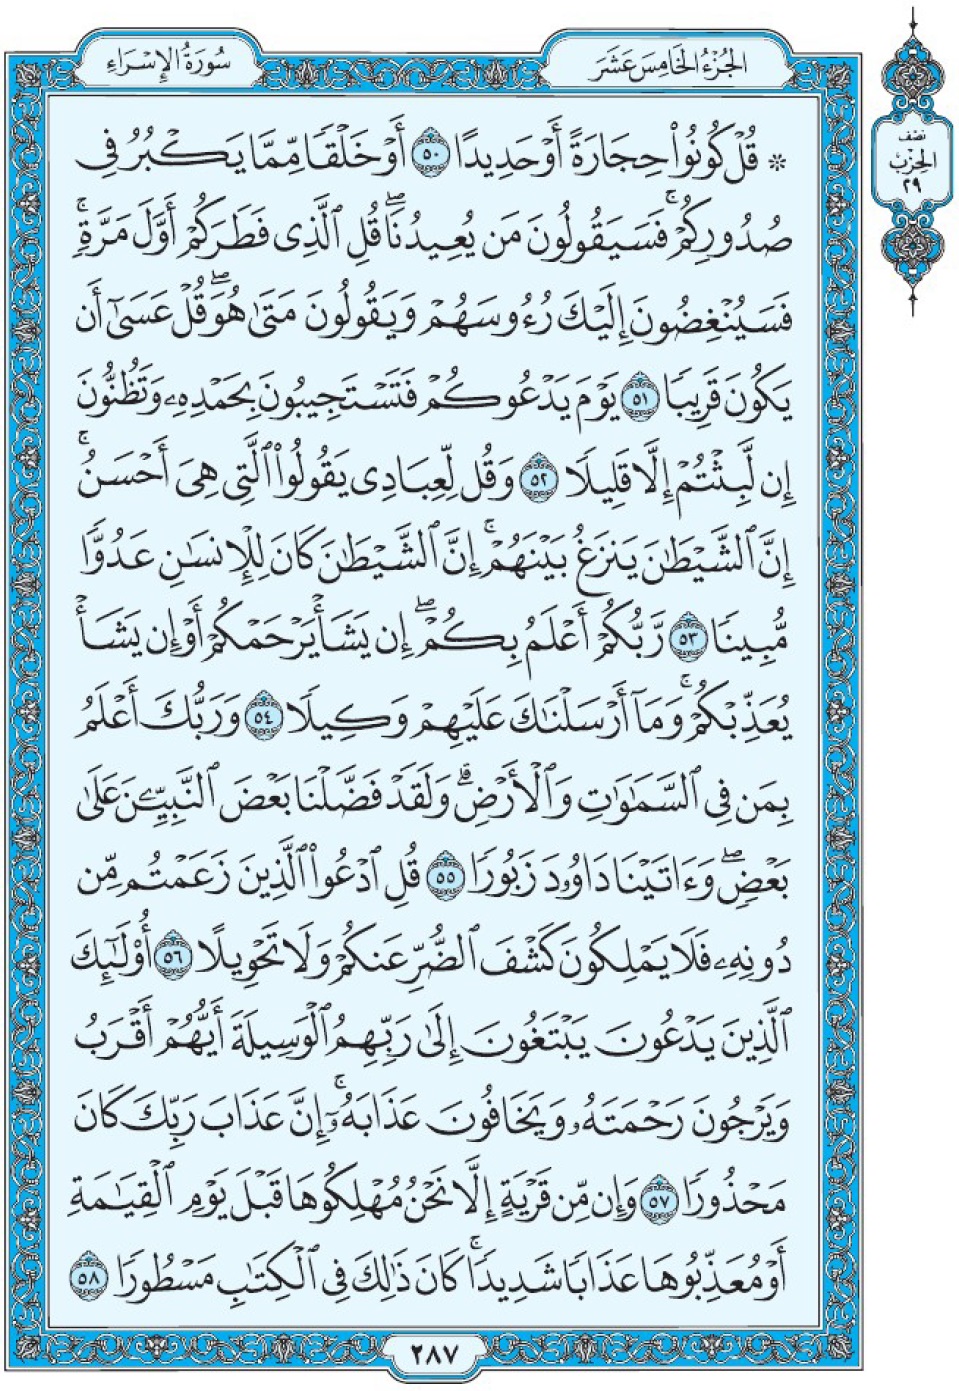 الجُزْءُ الخَامِسَ عَشَرَ
سُورَةُ الإِسْرَاءِ
نصف
الحِزْب
٢٩
۞ قُلْ كُونُوا۟ حِجَارَةً أَوْ حَدِيدًا ٥٠ أَوْ خَلْقًا مِّمَّا يَكْبُرُ فِى
صُدُورِكُمْ ۚ فَسَيَقُولُونَ مَن يُعِيدُنَا ۖ قُلِ ٱلَّذِى فَطَرَكُمْ أَوَّلَ مَرَّةٍ ۚ
فَسَيُنْغِضُونَ إِلَيْكَ رُءُوسَهُمْ وَيَقُولُونَ مَتَىٰ هُوَ ۖ قُلْ عَسَىٰٓ أَن
يَكُونَ قَرِيبًا ٥١ يَوْمَ يَدْعُوكُمْ فَتَسْتَجِيبُونَ بِحَمْدِهِۦ وَتَظُنُّونَ
إِن لَّبِثْتُمْ إِلَّا قَلِيلًا ٥٢ وَقُل لِّعِبَادِى يَقُولُوا۟ ٱلَّتِى هِىَ أَحْسَنُ ۚ
إِنَّ ٱلشَّيْطَـٰنَ يَنزَغُ بَيْنَهُمْ ۚ إِنَّ ٱلشَّيْطَـٰنَ كَانَ لِلْإِنسَـٰنِ عَدُوًّا
مُّبِينًا ٥٣ رَّبُّكُمْ أَعْلَمُ بِكُمْ ۖ إِن يَشَأْ يَرْحَمْكُمْ أَوْ إِن يَشَأْ
يُعَذِّبْكُمْ ۚ وَمَآ أَرْسَلْنَـٰكَ عَلَيْهِمْ وَكِيلًا ٥٤ وَرَبُّكَ أَعْلَمُ
بِمَن فِى ٱلسَّمَـٰوَٰتِ وَٱلْأَرْضِ ۗ وَلَقَدْ فَضَّلْنَا بَعْضَ ٱلنَّبِيِّـۧنَ عَلَىٰ
بَعْضٍ ۖ وَءَاتَيْنَا دَاوُۥدَ زَبُورًا ٥٥ قُلِ ٱدْعُوا۟ ٱلَّذِينَ زَعَمْتُم مِّن
دُونِهِۦ فَلَا يَمْلِكُونَ كَشْفَ ٱلضُّرِّ عَنكُمْ وَلَا تَحْوِيلًا ٥٦ أُو۟لَـٰٓئِكَ
ٱلَّذِينَ يَدْعُونَ يَبْتَغُونَ إِلَىٰ رَبِّهِمُ ٱلْوَسِيلَةَ أَيُّهُمْ أَقْرَبُ
وَيَرْجُونَ رَحْمَتَهُۥ وَيَخَافُونَ عَذَابَهُۥٓ ۚ إِنَّ عَذَابَ رَبِّكَ كَانَ
مَحْذُورًا ٥٧ وَإِن مِّن قَرْيَةٍ إِلَّا نَحْنُ مُهْلِكُوهَا قَبْلَ يَوْمِ ٱلْقِيَـٰمَةِ
أَوْ مُعَذِّبُوهَا عَذَابًا شَدِيدًا ۚ كَانَ ذَٰلِكَ فِى ٱلْكِتَـٰبِ مَسْطُورًا ٥٨
٢٨٧